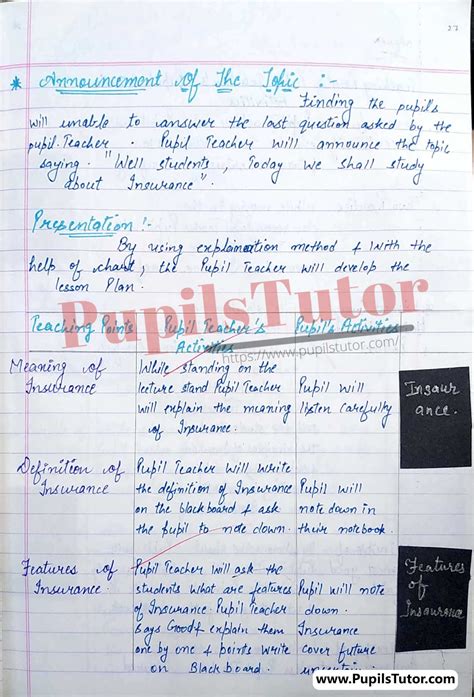 27
* Announcement Of The Topic :-
Finding the pupils
will unable to answer the last question asked by the
pupil Teacher. Pupil Teacher will announce the topic
saying. "Well students, Today we shall study
about Insurance".
Presentation :-
By using explaination method & With the
help of chart, the Pupil Teacher will develop the
lesson Plan.
PupilsTutor
https://www.pupilstutor.com/
Teaching Points Pupil Teacher's Pupil's Activities
Activities
Meaning of While standing on the
Insurance lecture stand Pupil Teacher Pupil will
will explain the meaning listen carefully
of Insurance.
Insur
ance.
Definition of Pupil Teacher will write
Insurance the definition of Insurance Pupil will
on the blackboard & ask note down in
the pupil to note down. their notebook.
Features of Pupil Teacher will ask the
Insurance. students what are features Pupil will note
of Insurance. Pupil Teacher down.
says Good & explain them Insurance
one by one & points write cover future
on Blackboard.
Features
of
Insurance
www.PupilsTutor.com